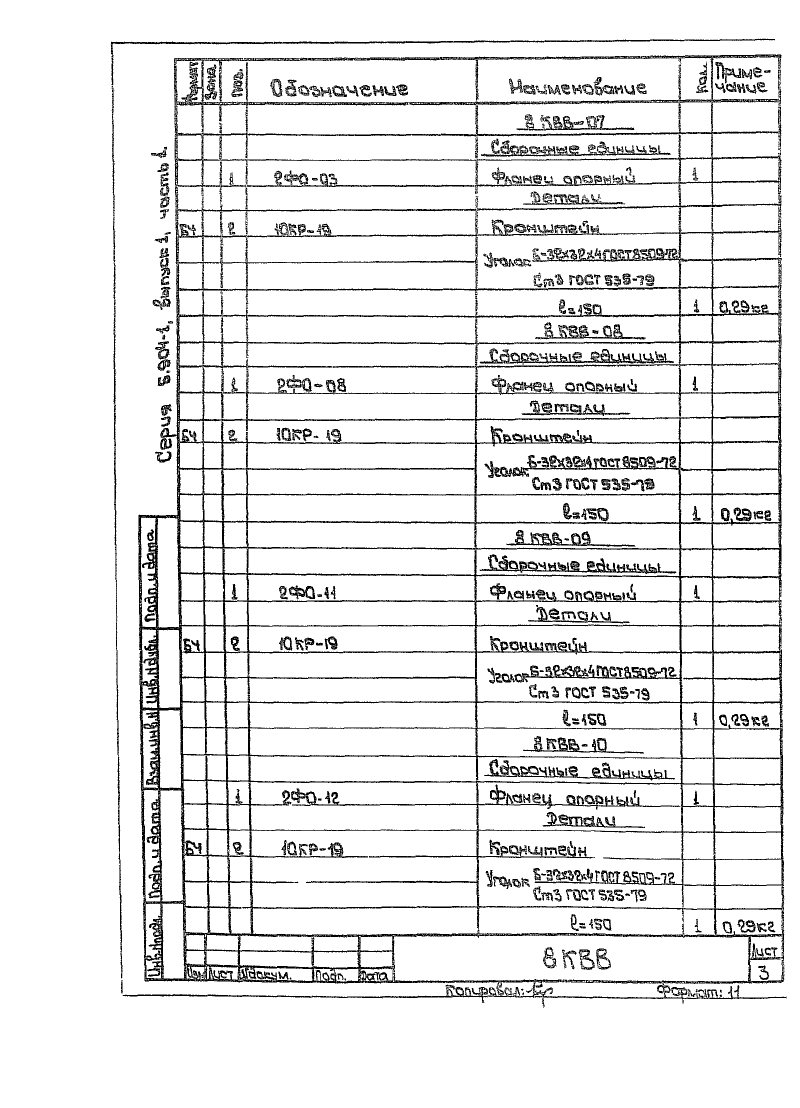 Серия 5.904-1, выпуск 1, часть 1.
Формат Зона Поз. Обозначение Наименование Кол. Приме-
чание
8 КВВ-07
Сборочные единицы
1 2ФО-03 Фланец опорный 1
Детали
БЧ 2 10КР-19 Кронштейн
Уголок Б-32х32х4 ГОСТ 8509-72
Ст3 ГОСТ 535-79
ℓ=150 1 0,29кг
8 КВВ-08
Сборочные единицы
1 2ФО-08 Фланец опорный 1
Детали
БЧ 2 10КР-19 Кронштейн
Уголок Б-32х32х4 ГОСТ 8509-72
Ст3 ГОСТ 535-79
ℓ=150 1 0,29кг
8 КВВ-09
Сборочные единицы
1 2ФО-11 Фланец опорный 1
Детали
БЧ 2 10КР-19 Кронштейн
Уголок Б-32х32х4 ГОСТ 8509-72
Ст3 ГОСТ 535-79
ℓ=150 1 0,29кг
8 КВВ-10
Сборочные единицы
1 2ФО-12 Фланец опорный 1
Детали
БЧ 2 10КР-19 Кронштейн
Уголок Б-32х32х4 ГОСТ 8509-72
Ст3 ГОСТ 535-79
ℓ=150 1 0,29кг
Подп. и дата
Инв.№дубл.
Взам.инв.№
Подп. и дата
Инв.№подл.
Изм Лист №докум. Подп. Дата
8 КВВ
Лист
3
Копировал: Формат: 11